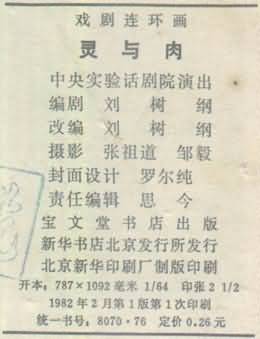 戏剧连环画
灵与肉
中央实验话剧院演出
编剧 刘树纲
改编 刘树纲
摄影 张祖道 邹毅
封面设计 罗尔纯
责任编辑 思今
宝文堂书店出版
新华书店北京发行所发行
北京新华印刷厂制版印刷
开本：787×1092毫米 1/64 印张2 1/2
1982年2月第1版第1次印刷
统一书号：8070·76 定价0.26元